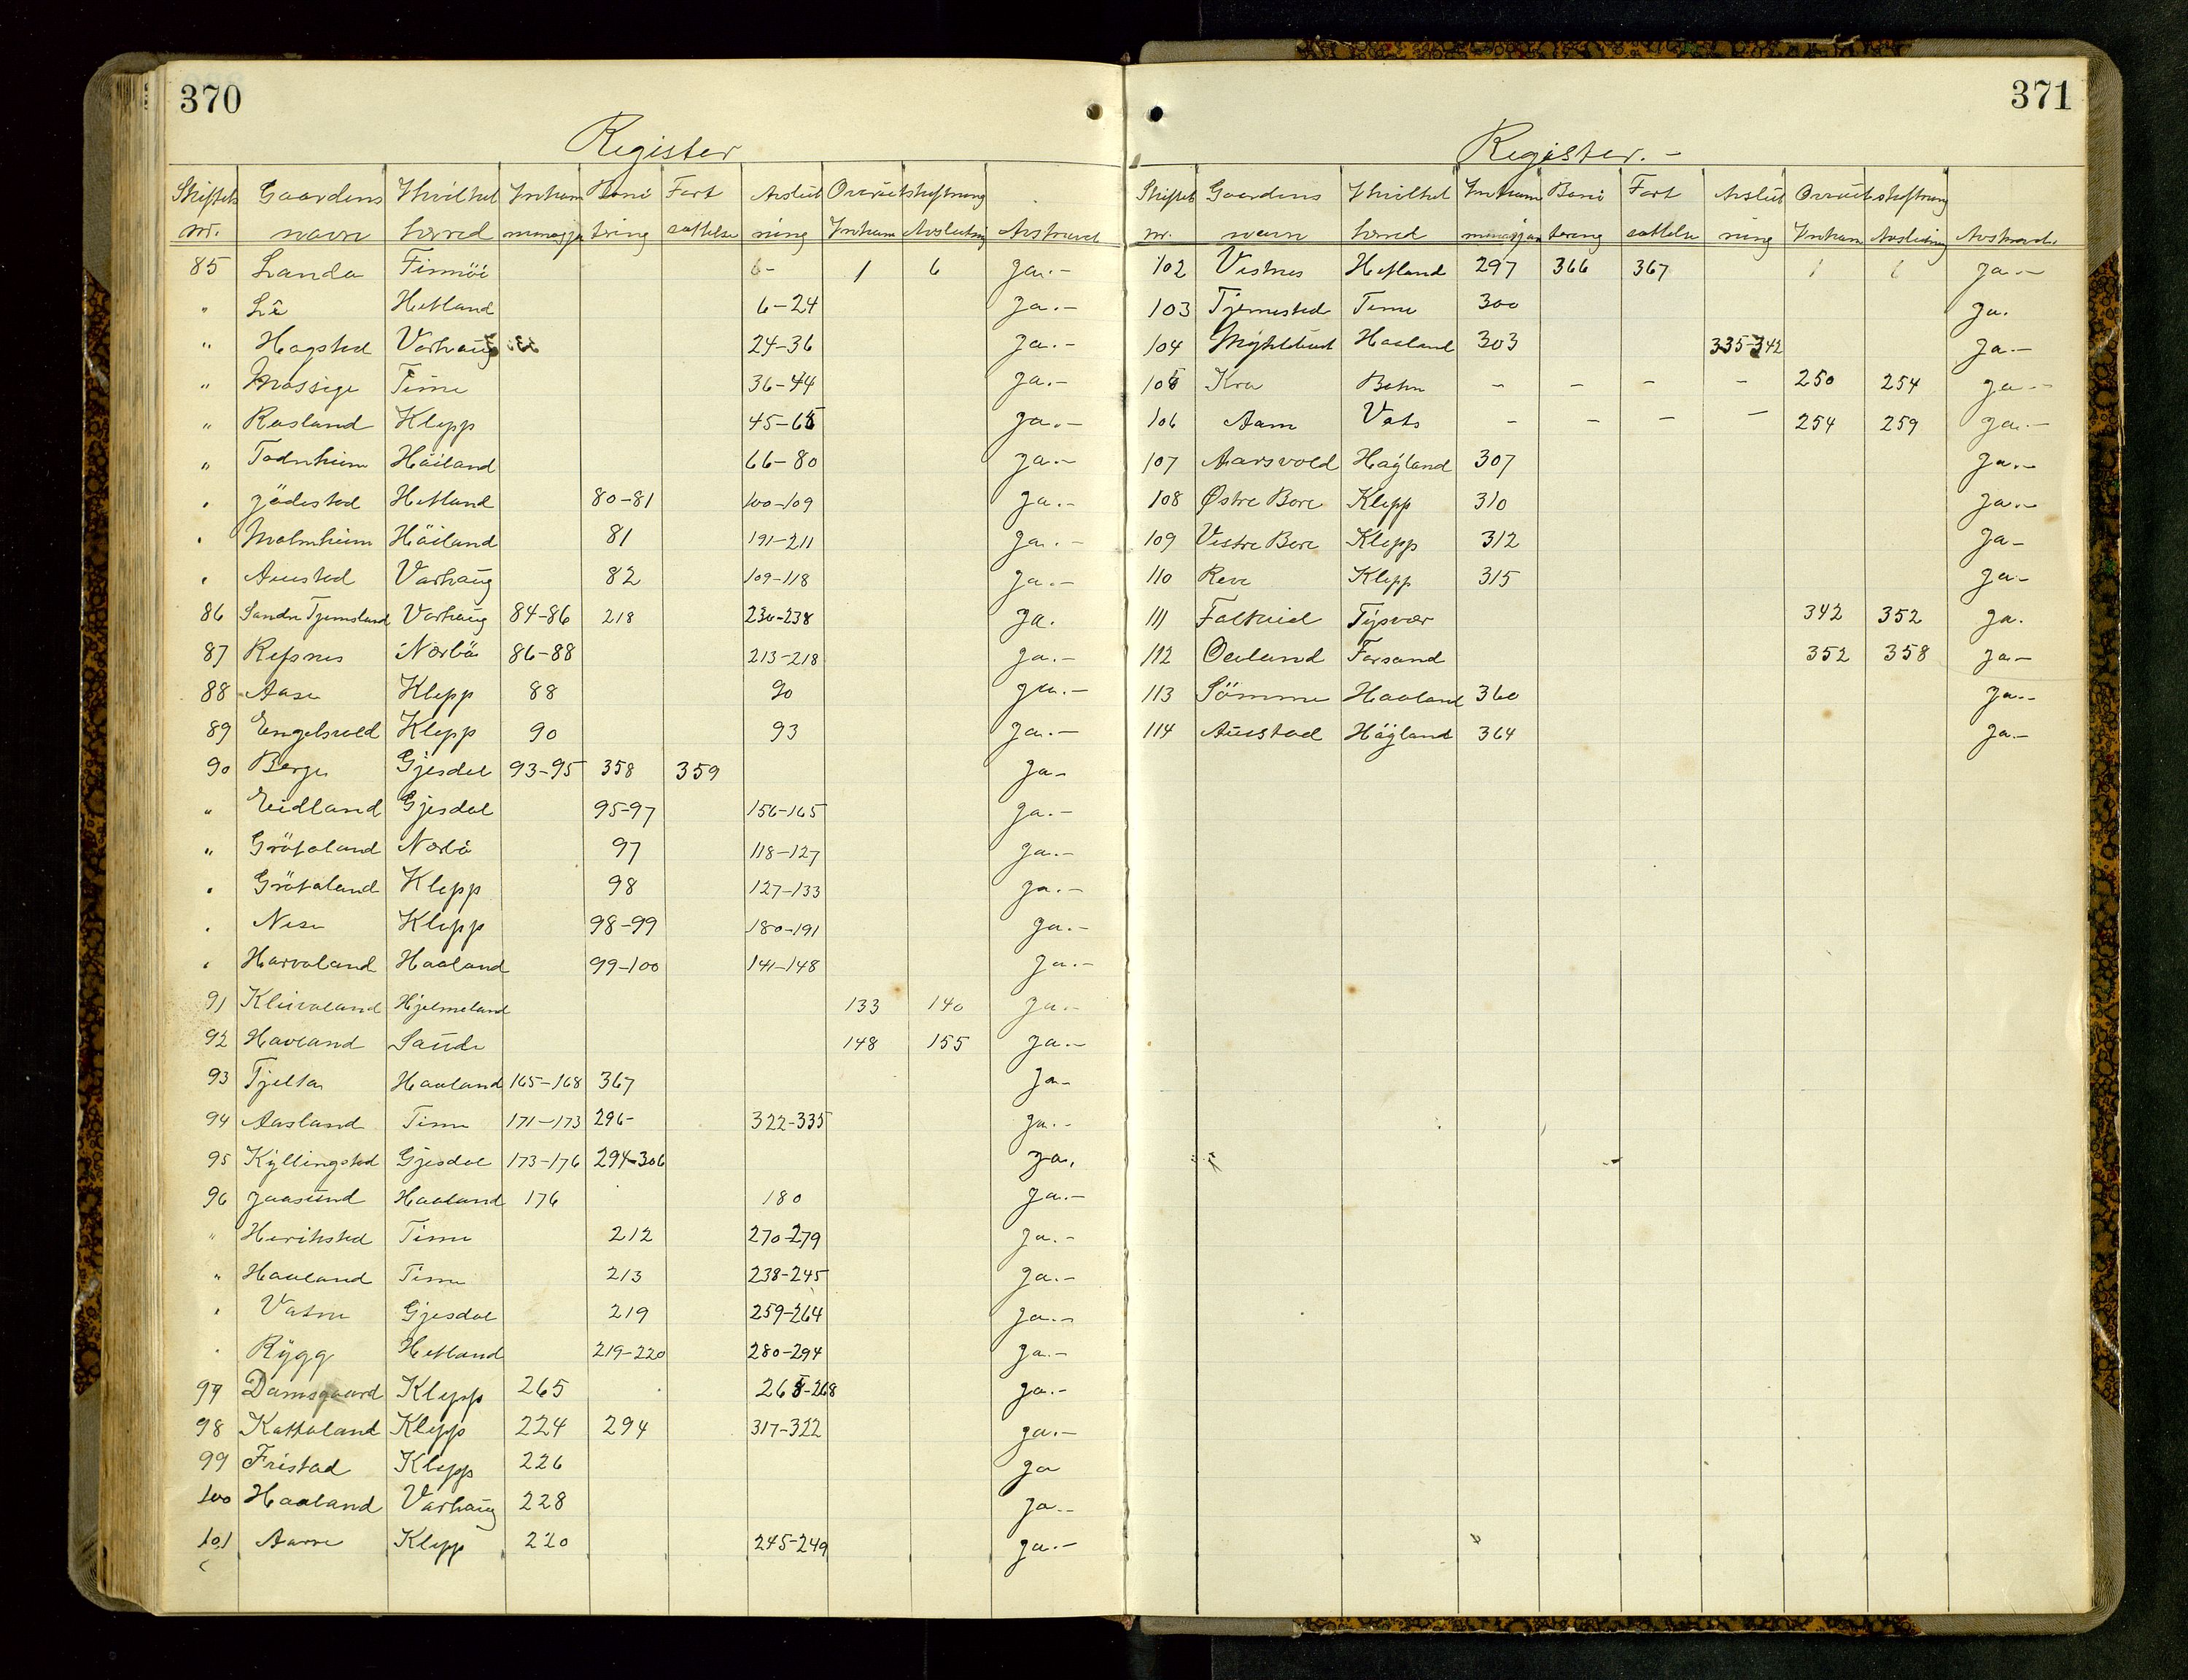 370
Register
Skiftets Gaardens Hvilket Inkam Boni Fort Avslut Overutskiftning
nr. navn herred minasjon tering sættelse ning Inkam Avslutning Avskrevet
85 Landa Finnöi 6- 1 6 ja.-
" Lë Hetland 6-24 ja.-
" Hogstad Varhaug 24-36 ja.-
" Mossige Time 36-44 ja.-
" Rosland Klepp 45-65 ja.-
" Todnheim Höiland 66-80 ja.-
" Jödestad Hetland 80-81 100-109 ja.-
" Malmheim Höiland 81 191-211 ja.-
" Austad Varhaug 82 109-118 ja.-
86 Søndre Tjemsland Varhaug 84-86 218 230-238 ja.
87 Refsnes Nærbö 86-88 213-218 ja.-
88 Aase Klepp 88 90 ja.-
89 Engelsvold Klepp 90 93 ja.-
90 Berge Gjesdal 93-95 358 359 ja-
" Eidland Gjesdal 95-97 156-165 ja.-
" Grötaland Nærbö 97 118-127 ja.-
" Grötaland Klepp 98 127-133 ja.-
" Nese Klepp 98-99 180-191 ja.-
" Harvaland Haaland 99-100 141-148 ja.-
91 Kleivaland Hjelmeland 133 140 ja.-
92 Havland Saude 148 155 ja.-
93 Tjelta Haaland 165-168 367 ja-
94 Aasland Time 171-173 296- 322-335 ja.-
95 Kyllingstad Gjesdal 173-176 294-306 ja.
96 Jaasund Haaland 176 180 ja.-
" Herikstad Time 212 270-279 ja.-
" Haaland Time 213 238-245 ja.-
" Vatne Gjesdal 219 259-264 ja.-
" Rygg Hetland 219-220 280-294 ja.-
97 Damsgaard Klepp 265 265-268 ja.-
98 Kattaland Klepp 224 294 317-322 ja.-
99 Fristad Klepp 226 ja
100 Haaland Varhaug 228 ja.-
101 Aarre Klepp 220 245-249 ja.-
371
Register.-
Skiftets Gaardens Hvilket Inkam Boni Fort Avslut Overutskiftning
nr. navn herred minasjon tering sættelse ning Inkam Avslutning Avskrevet
102 Vistnes Hetland 297 366 367 ja.-
103 Tjemestad Time 300 ja.
104 Myklebust Haaland 303 335-342 ja.-
105 Kra Bokn - - - - 250 254 ja.-
106 Aam Vats - - - - 254 259 ja.-
107 Aarsvold Høyland 307 ja.-
108 Østre Bore Klepp 310 ja.-
109 Vestre Bore Klepp 312 ja-
110 Reve Klepp 315 ja-
111 Falkeid Tysvær 342 352 ja.
112 Oaland Forsand 352 358 ja-
113 Sömme Haaland 360 ja.-
114 Austad Höyland 364 ja.-